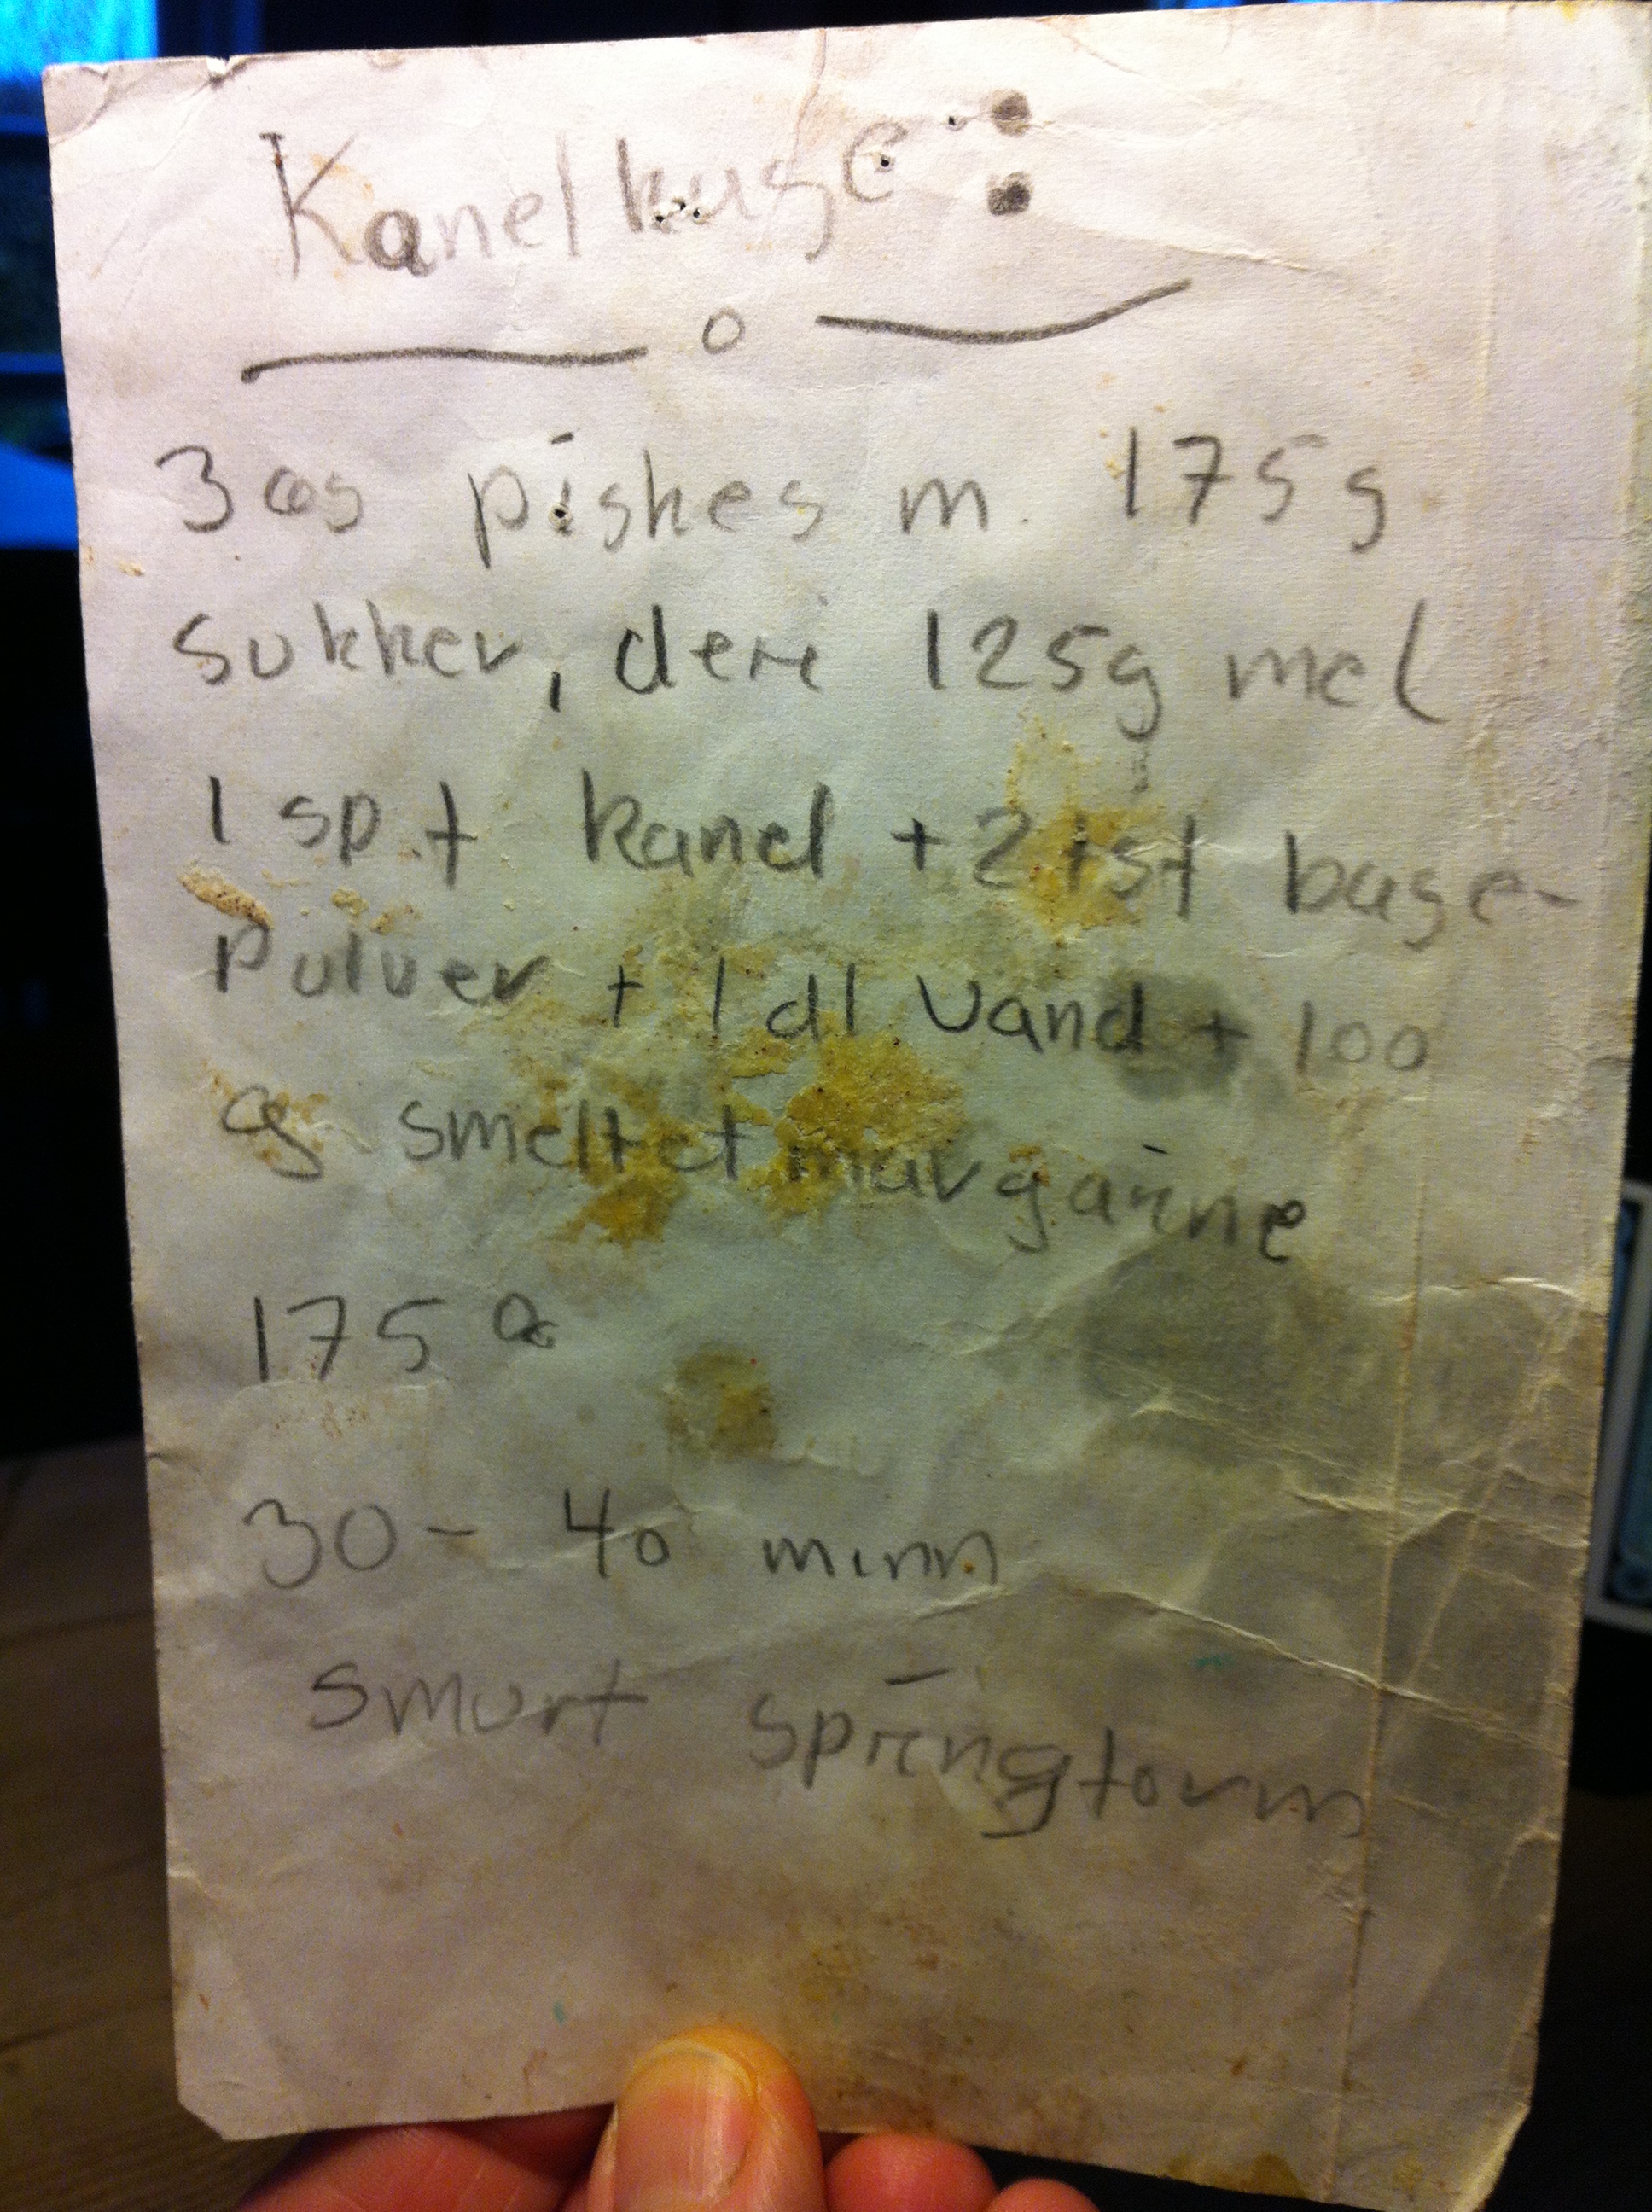 Kanelkage :
3 æg piskes m. 175 g
sukker, deri 125g mel
1 sp.t kanel + 2 tst bage-
pulver + 1 dl vand + 100
g smeltet margarine
175 °
30 - 40 minn
smurt springform